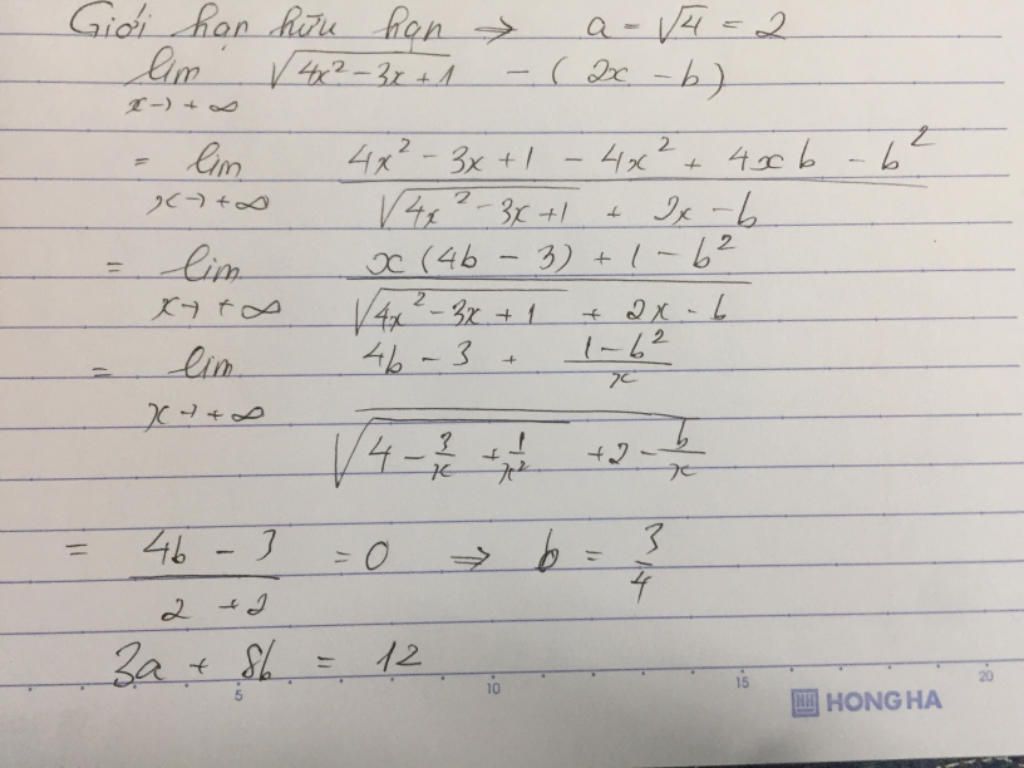 Giới hạn hữu hạn → a = √4 = 2
lim x→+∞ √(4x² - 3x + 1) - (2x - b)
= lim x→+∞ (4x² - 3x + 1 - 4x² + 4xb - b²) / (√(4x² - 3x + 1) + 2x - b)
= lim x→+∞ (x(4b - 3) + 1 - b²) / (√(4x² - 3x + 1) + 2x - b)
= lim x→+∞ (4b - 3 + (1 - b²)/x) / (√(4 - 3/x + 1/x²) + 2 - b/x)
= (4b - 3)/(2 + 2) = 0 ⇒ b = 3/4
3a + 8b = 12
5 10 15 20
HH HONG HA